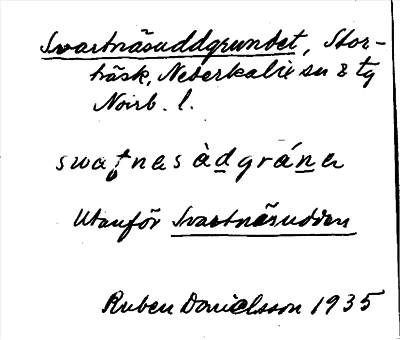 Svartnäsuddgrundet, Stor-
träsk, Nederkalix sn & tg
Norrb. l.
swaṭnas àdgránǝ
Utanför Svartnäsudden
Ruben Danielsson 1935